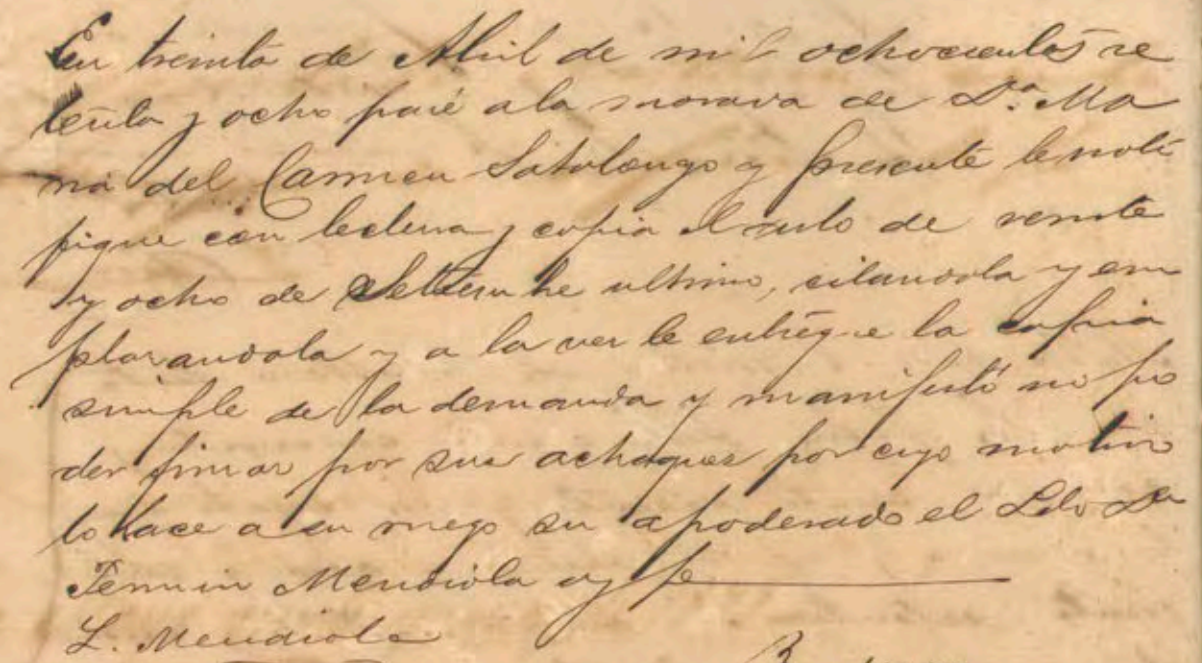 En treinta de Abril de mil ochocientos se
tenta y ocho pasé a la morada de Dª. Ma
ria del Carmen Sotolongo y presente le noti
fiqué con lectura y copia el auto de veinte
y ocho de Setiembre ultimo, citandola y em
plazandola y a la vez le entregue la copia
simple de la demanda y manifestó no po
der firmar por sus achaques por cuyo motivo
lo hace a su ruego su apoderado el Ldo Dn
Fermin Mendiola doy fe
F. Mendiola